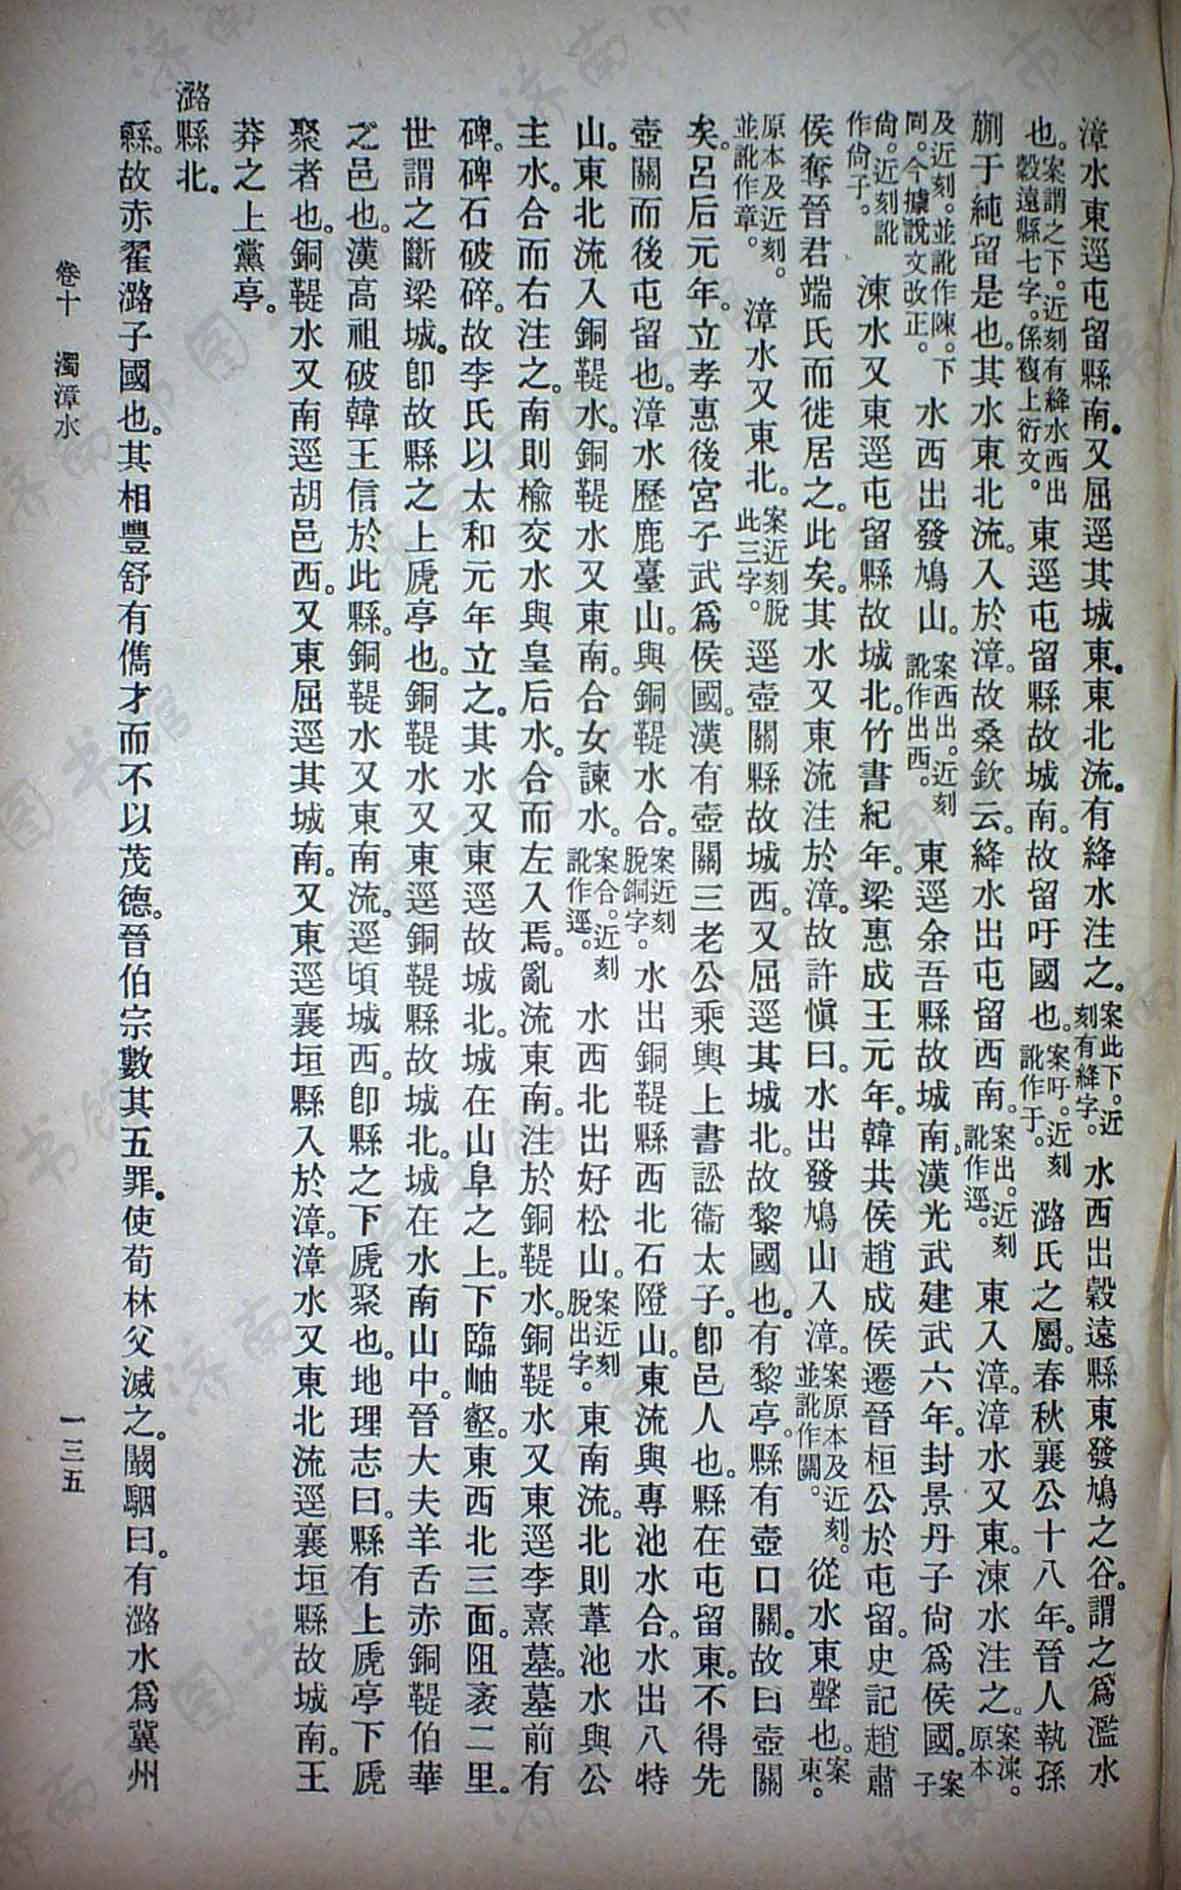 漳水東逕屯留縣南。又屈逕其城東。東北流。有絳水注之。案此下。近刻有絳字。水西出穀遠縣東發鳩之谷。謂之爲濫水
也。案謂之下。近刻有絳水西出穀遠縣七字。係複上衍文。東逕屯留縣故城南。故留吁國也。案吁。近刻訛作于。潞氏之屬。春秋襄公十八年。晉人執孫
蒯于純留是也。其水東北流。入於漳。故桑欽云。絳水出屯留西南。案出。近刻訛作逕。東入漳。漳水又東。涷水注之。案涷。原本
及近刻。並訛作陳。下同。今據說文改正。水西出發鳩山。案西出。近刻訛作出西。東逕余吾縣故城南。漢光武建武六年。封景丹子尙爲侯國。案子
尙。近刻訛作尙子。涷水又東逕屯留縣故城北。竹書紀年。梁惠成王元年。韓共侯趙成侯遷晉桓公於屯留。史記趙肅
侯奪晉君端氏而徙居之。此矣。其水又東流注於漳。故許愼曰。水出發鳩山入漳。案原本及近刻。並訛作關。從水東聲也。案東。
原本及近刻。並訛作章。漳水又東北。案近刻脫此三字。逕壺關縣故城西。又屈逕其城北。故黎國也。有黎亭。縣有壺口關。故曰壺關
矣。呂后元年。立孝惠後宮子武爲侯國。漢有壺關三老公乘輿上書訟衞太子。卽邑人也。縣在屯留東。不得先
壺關而後屯留也。漳水歷鹿臺山。與銅鞮水合。案近刻脫銅字。水出銅鞮縣西北石隥山。東流與專池水合。水出八特
山。東北流入銅鞮水。銅鞮水又東南。合女諫水。案合。近刻訛作逕。水西北出好松山。案近刻脫出字。東南流。北則葦池水與公
主水。合而右注之。南則楡交水與皇后水。合而左入焉。亂流東南。注於銅鞮水。銅鞮水又東逕李憙墓。墓前有
碑。碑石破碎。故李氏以太和元年立之。其水又東逕故城北。城在山阜之上。下臨岫壑。東西北三面。阻袤二里。
世謂之斷梁城。卽故縣之上虒亭也。銅鞮水又東逕銅鞮縣故城北。城在水南山中。晉大夫羊舌赤銅鞮伯華
之邑也。漢高祖破韓王信於此縣。銅鞮水又東南流。逕頃城西。卽縣之下虒聚也。地理志曰。縣有上虒亭下虒
聚者也。銅鞮水又南逕胡邑西。又東屈逕其城南。又東逕襄垣縣入於漳。漳水又東北流逕襄垣縣故城南。王
莽之上黨亭。
潞縣北。
縣。故赤翟潞子國也。其相豐舒有儁才而不以茂德。晉伯宗數其五罪。使荀林父滅之。闞駰曰。有潞水爲冀州
卷十 濁漳水
一三五